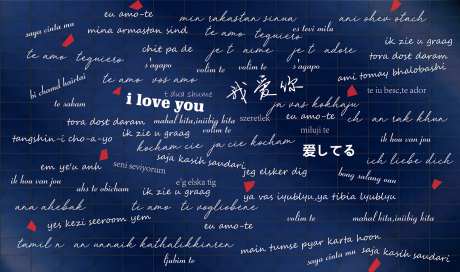 eu amo-te min rakastan sinua ani ohev otach
saya cinta mu mina armastan sind te amo tequiero es tevi milu
te amo tequiero chit pa de je t' aime je t' adore ik zie u graag
s'agapo volim te volim te s'agapo tora dost daram
bi chamd hairtai te amo vos amo ami tomay bhalobashi
我爱你 te iu besc,te ador
te sakam i love you t dua shume ja vas kokhaju
tora dost daram mahal kita,iniibig kita szeretlek eu amo-te ch an rak khun
tangshin-i cho-a-yo ik zie u graag volim te miluji te ik hou van jou
kocham cie ja cie kocham 愛してる ich liebe dich
em ye'u anh seni seviyorum saja kasih saudari
ik hou van jou jeg elsker dig bong salang oun
aks te obicham e'g elska tig ik zie u graag ya vas iyubiyu,ya tibia lyubiyu
ana ahebak te amo ti vogliobene
yes kezi seeroom yem volim te mahal kita,iniibig kita
eu amo-te
tamil n an unnaik kathalikkinren main tumse pyar karta hoon
ljubim te saya cinta mu saja kasih saudari